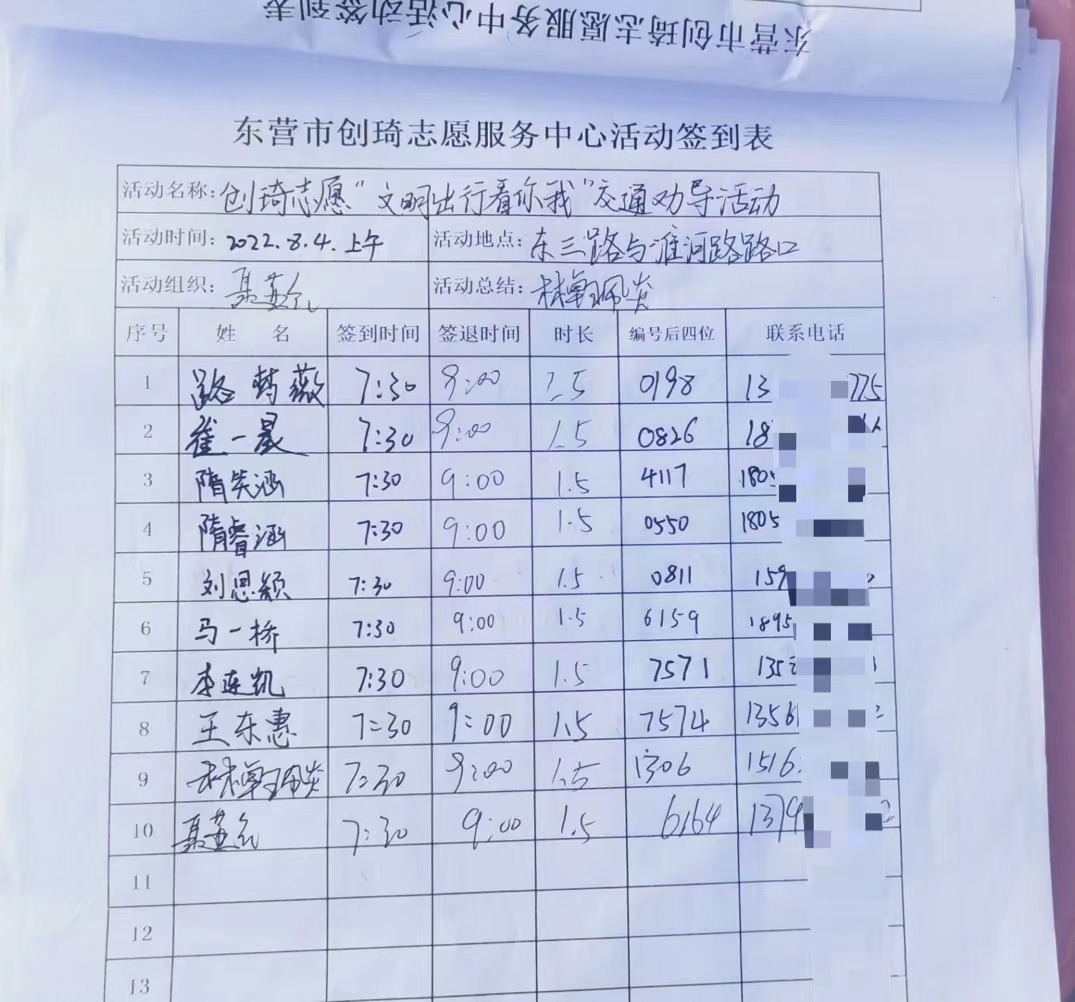 东营市创琦志愿服务中心活动签到表
东营市创琦志愿服务中心活动签到表
活动名称: 创琦志愿"文明出行看你我"交通劝导活动
活动时间: 2022.8.4.上午 活动地点: 东三路与淮河路路口
活动组织: 活动总结:
序号 姓 名 签到时间 签退时间 时长 编号后四位 联系电话
1 路 薇 7:30 9:00 1.5 0198 13 775
2 崔一晨 7:30 9:00 1.5 0826 18
3 隋笑涵 7:30 9:00 1.5 4117 1805
4 隋睿涵 7:30 9:00 1.5 0550 1805
5 刘恩颖 7:30 9:00 1.5 0811 159
6 马一桥 7:30 9:00 1.5 6159 1895
7 李连凯 7:30 9:00 1.5 7571 135
8 王东惠 7:30 9:00 1.5 7574 1356
9 7:30 9:00 1.5 1306 1516
10 7:30 9:00 1.5 6164 1379
11
12
13